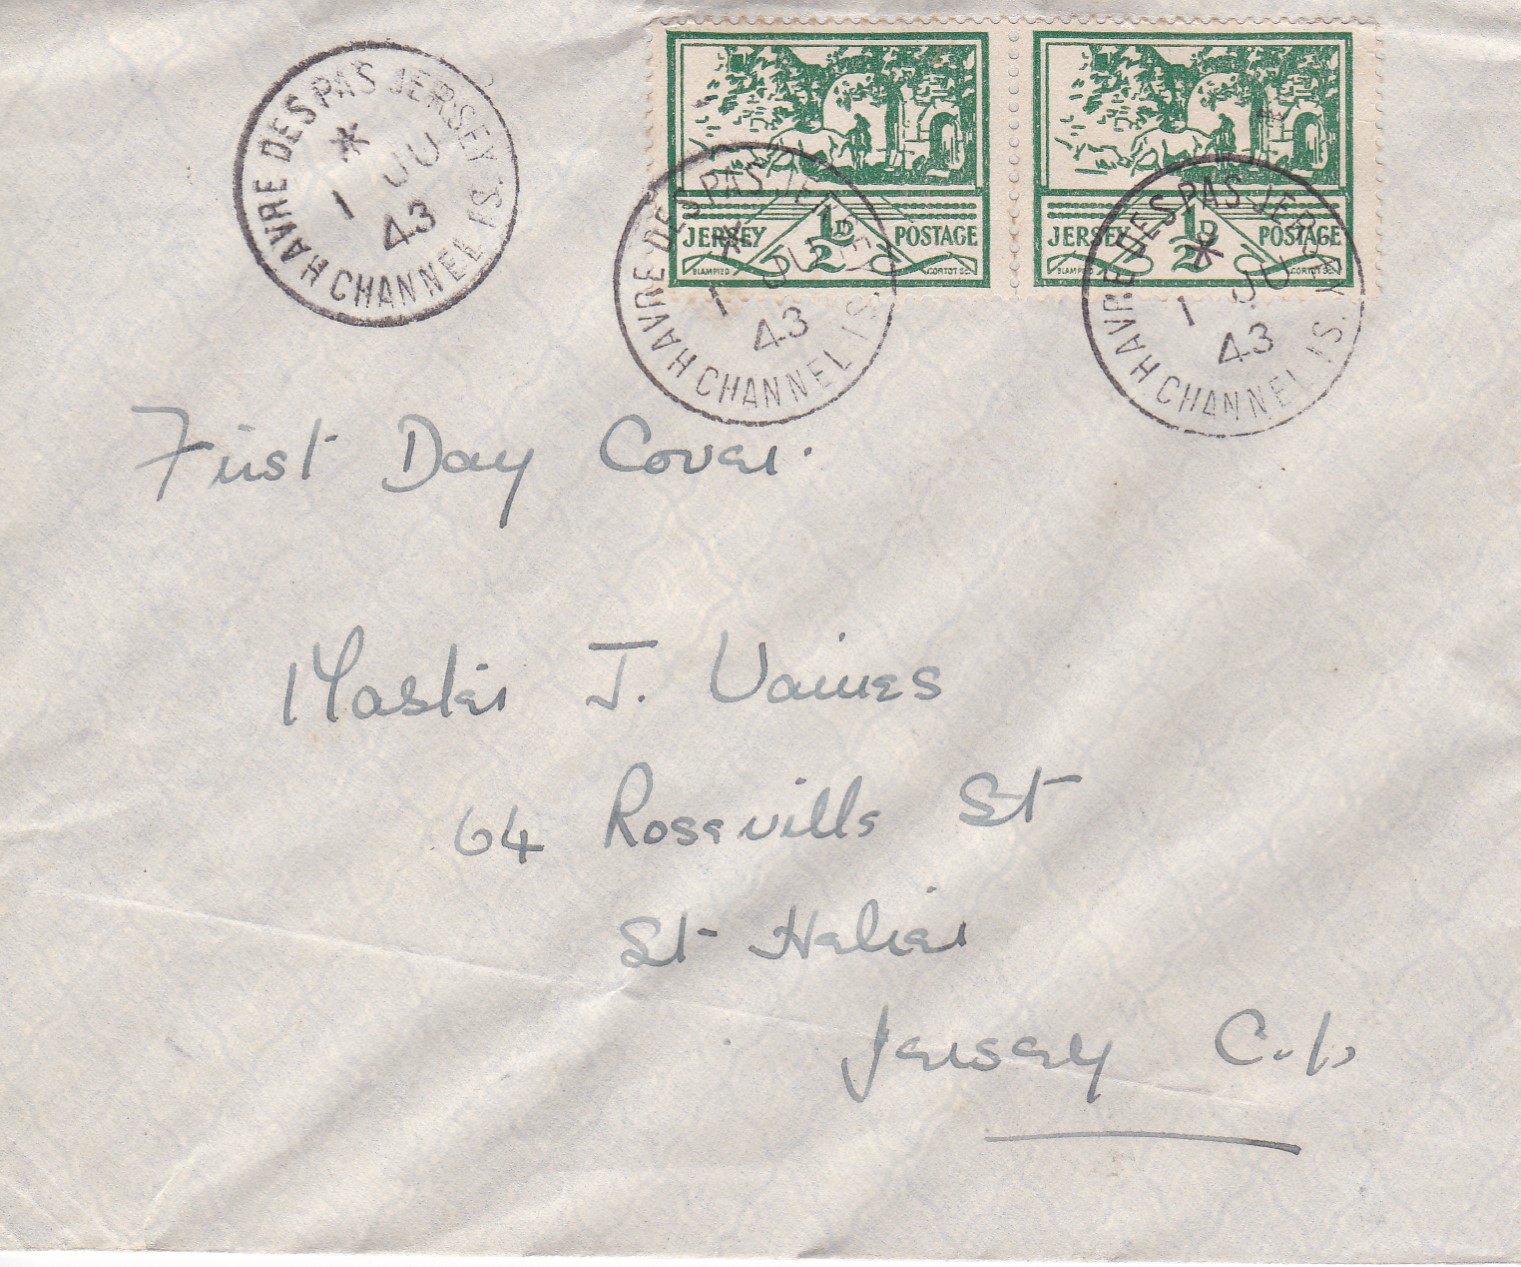 HAVRE DES PAS JERSEY CHANNEL IS.
* 1 JU 43
JERSEY ½D POSTAGE
BLAMPIED CORTOT SC.
JERSEY ½D POSTAGE
BLAMPIED CORTOT SC.
HAVRE DES PAS JERSEY CHANNEL IS.
* 1 JU 43
HAVRE DES PAS JERSEY CHANNEL IS.
* 1 JU 43
First Day Cover.
Master J. Vaines
64 Roseville St
St Helier
Jersey C.I.